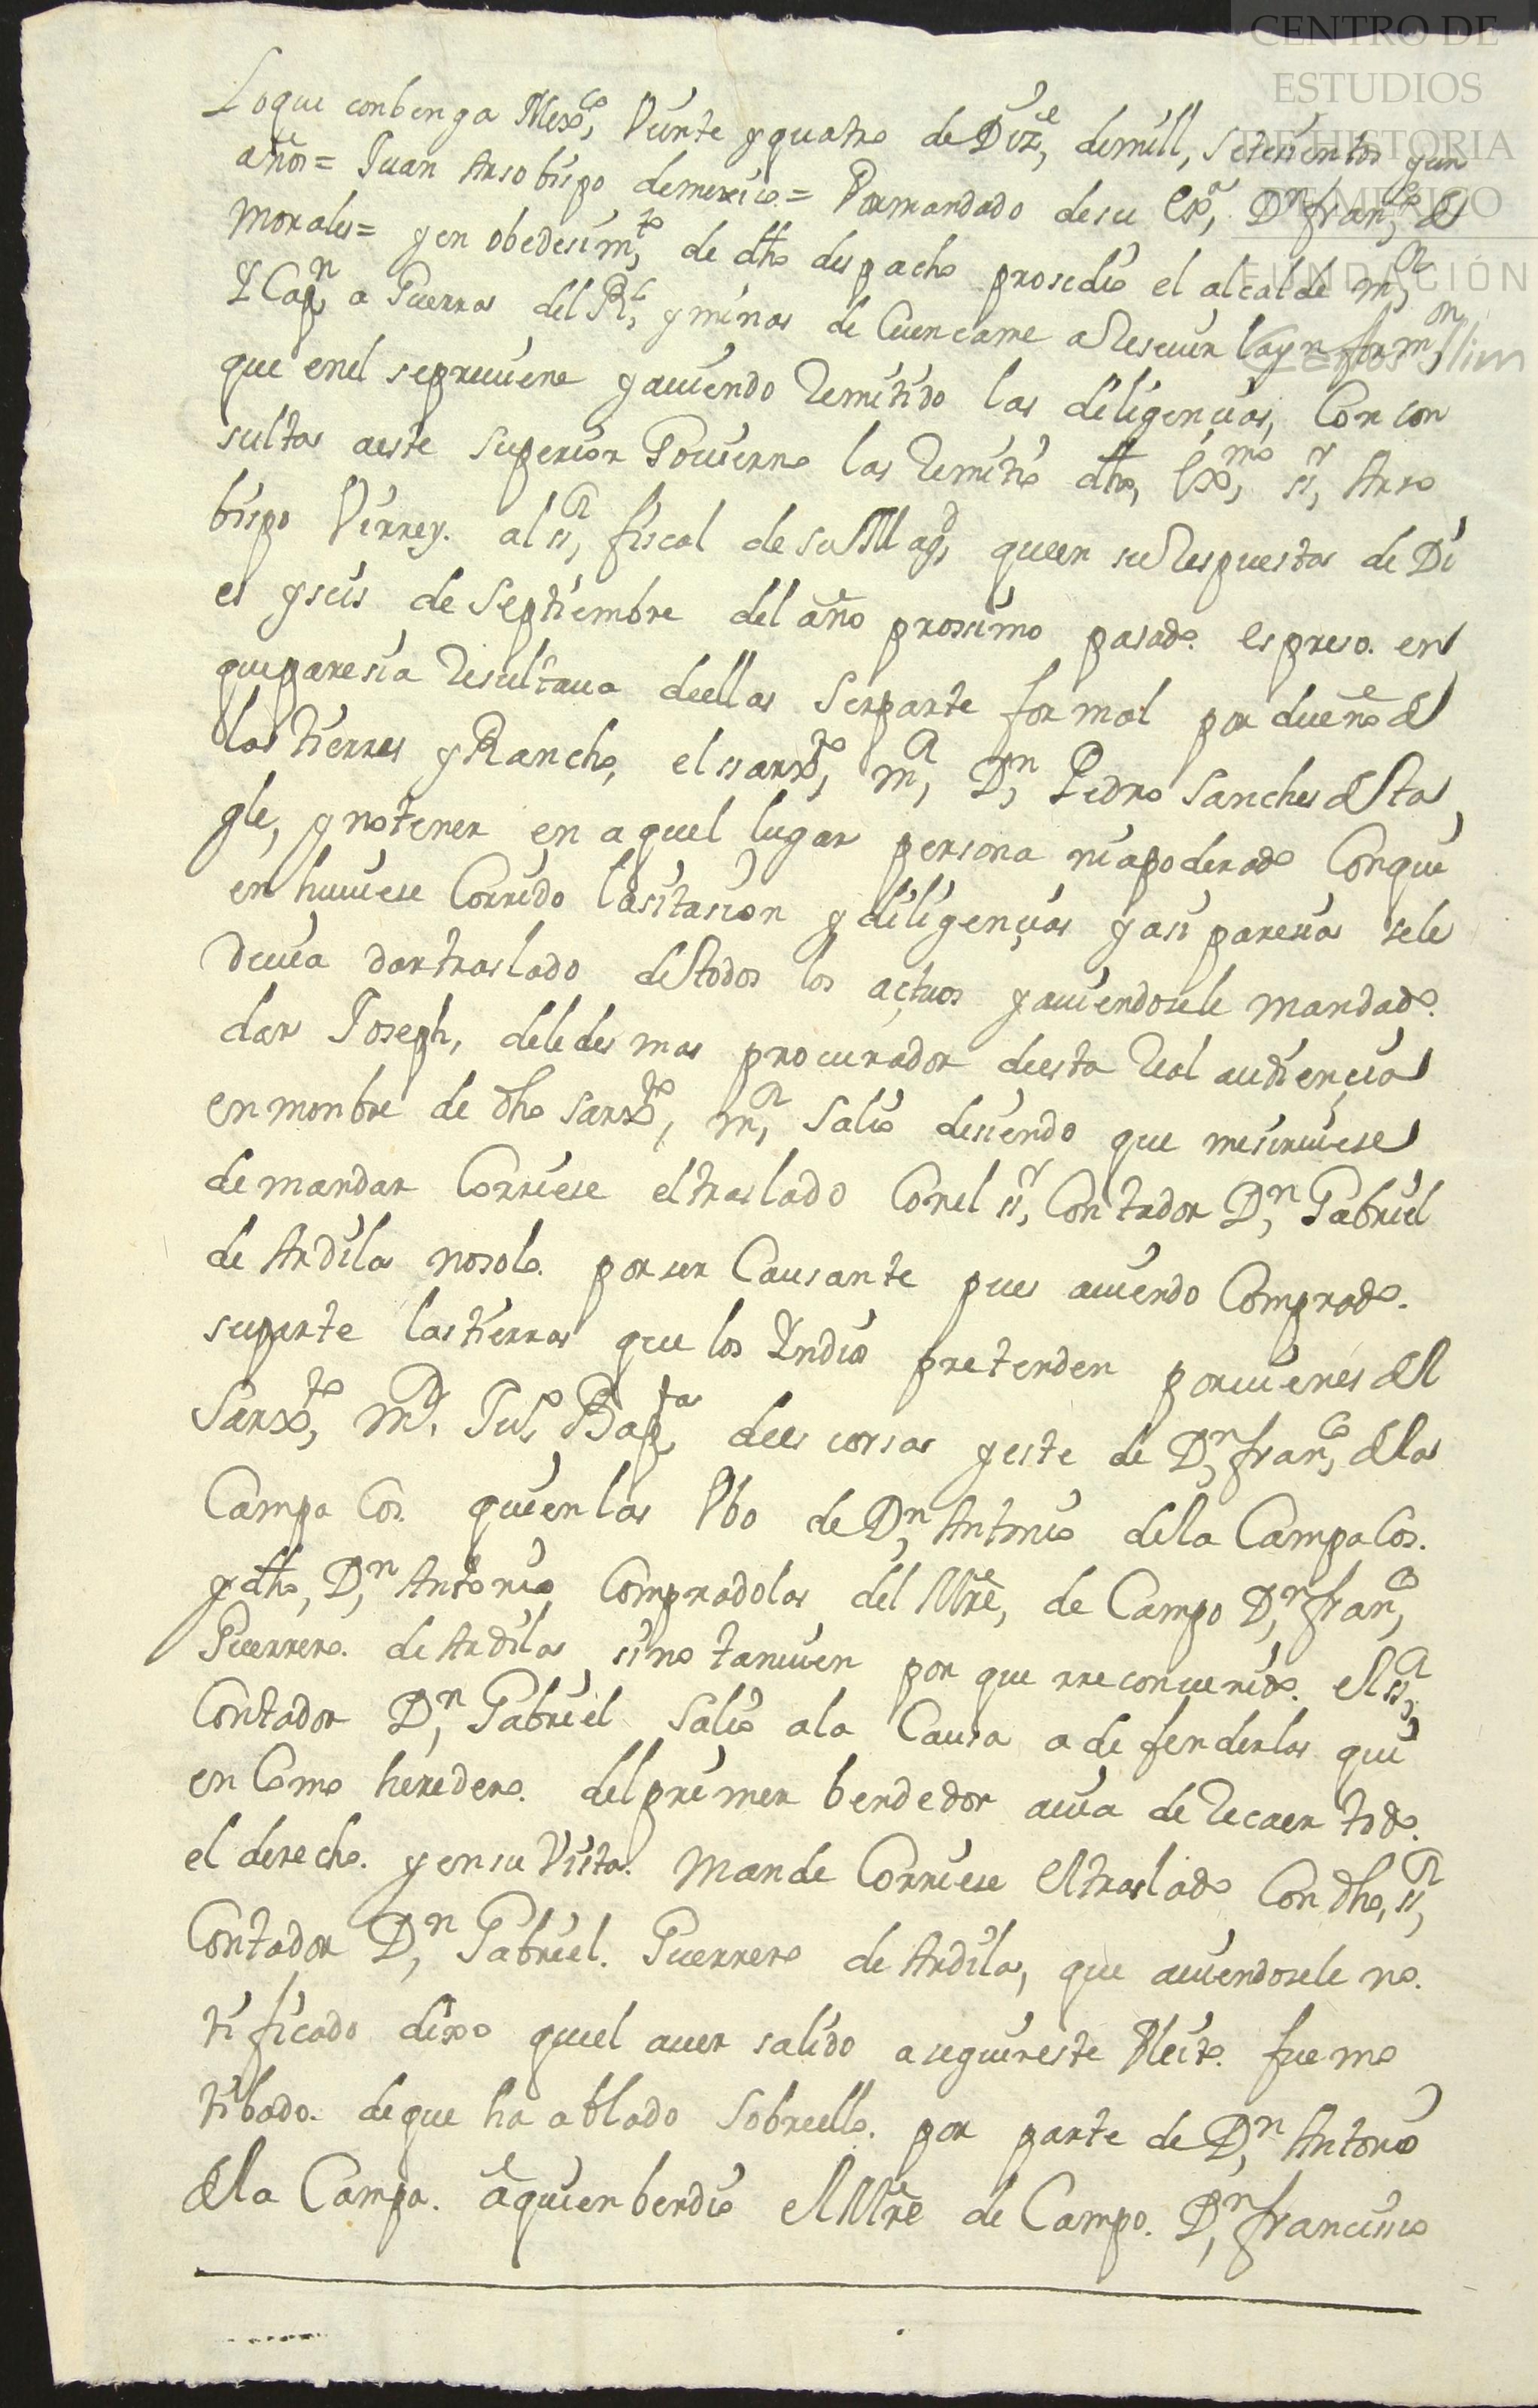 Loque conbenga Mexco, Veinte yquatro de Dize, demill, setecientos yun
años = Juan Arsobispo demexico = Pormandado desu Exa, Dn franco, de
Morales = y en obedesimto, de dho despacho prosedio el alcalde mr,
Y Capn, a Guerra del Rl, y minas de Cuencame a Resevir la ynformon
que enel sepreviene y aviendo Remitido las diligencias, Con con
sulta aeste superior Govierno las Remitio dho, Exmo, sr, Arso
bispo Virrey. al sr, fiscal de su Magd, queen suRespuesta de Di
es yseis de Septiembre del año prossimo pasado. espreso. en
queparesia Resultava deellas Serparte formal por dueño de
las tierras y Rancho, el sarxto, mr, Dn, Pedro Sanches de Ta
gle, y notener en aquel lugar persona niapoderado Conqui
en huviese Corrido lasitasion y diligencias yasi paresia sele
Devia dartraslado de todos los actuos y aviendosele mandado.
dar Joseph, deledesma procurador deesta Real audiencia
enmonbre de dho Sarxto, mr, Salio disiendo que mesirviese
demandar Corriese eltraslado Conel sr, Contador Dn, Gabriel
de Ardila nosolo. porser Causante pues aviendo Comprado.
suparte lastierras que los Yndios pretenden porvienes del
Sarxto, mr. Jul, Bapta, dees corsa y este de Dn, franco, de la
Campa Cos. quienlas Vbo de Dn, Antonio dela Campa Cos.
y dho, Dn, Antonio Compradolas del Mre, de Campo Dn, franco,
Guerrero. de Ardila sino tanvien por que rreconvenido. el sr,
Contador Dn, Gabriel Salio ala Causa a defenderlas qui
en Como heredero. delprimer bendedor avia de Recaer todo.
el derecho. y ensu Vista. Mande Corriese el traslado Con dho, sr,
Contador Dn, Gabriel. Guerrero de Ardila, que aviendosele no.
tificado dixo queel aver salido aseguireste Pleito. fue mo
tibado. deque ha ablado Sobreello. por parte de Dn, Antonio
dela Campa. aquienbendio el Mre de Campo. Dn, francisco
CENTRO DE
ESTUDIOS
DE HISTORIA
DE MÉXICO
FUNDACIÓN
Carlos Slim